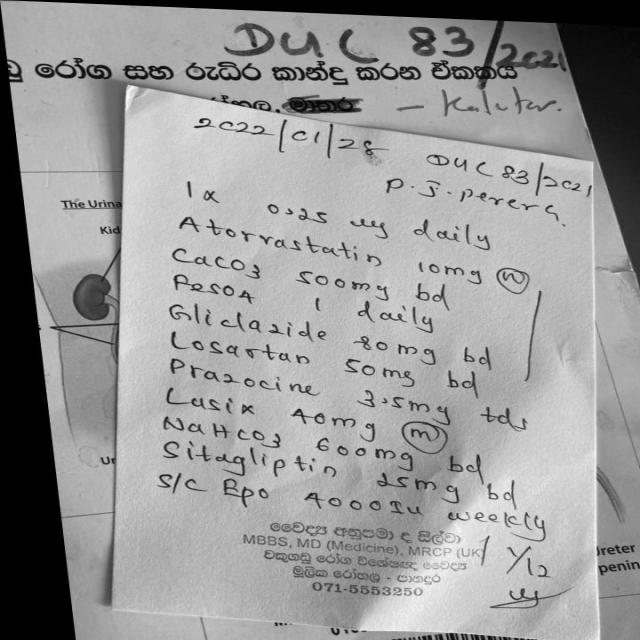 DUC 83/2021
රෝග සහ රුධිර කාන්දු කරන ඒකකය
මාතර - Kalutar.
2022/01/28
DUC 83/2021
P. J. Perera
The Urina
Kid
1α 0.25 ug daily
Atorvastatin 10mg (n)
CaCO3 500mg bd
FeSO4 1 daily
Gliclazide 80mg bd
Losartan 50mg bd
Prazocine 3.5mg tds
Lasix 40mg (m)
NaHCO3 600mg bd
Sitagliptin 25mg bd
S/C Epo 4000IU weekly
වෛද්‍ය අනුපමා ද සිල්වා
MBBS, MD (Medicine), MRCP (UK)
වකුගඩු රෝග විශේෂඥ වෛද්‍ය
මූලික රෝහල - පානදුර
071-5553250
1/12
reter
penin